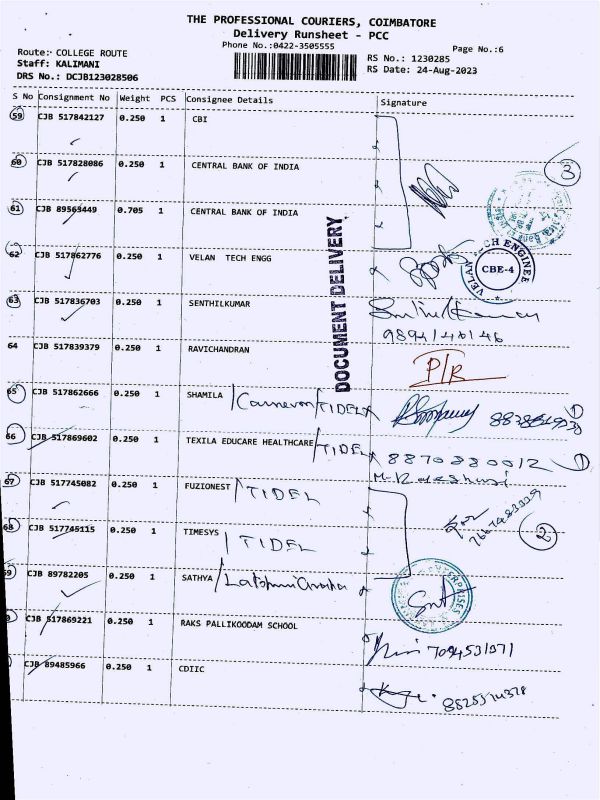 THE PROFESSIONAL COURIERS, COIMBATORE
Delivery Runsheet - PCC
Phone No.:0422-3505555
Page No.:6
Route:- COLLEGE ROUTE
Staff: KALIMANI
DRS No.: DCJB123028506
RS No.: 1230285
RS Date: 24-Aug-2023
S No Consignment No Weight PCS Consignee Details Signature
59 CJB 517842127 0.250 1 CBI
60 CJB 517828086 0.250 1 CENTRAL BANK OF INDIA
3
61 CJB 89563449 0.705 1 CENTRAL BANK OF INDIA
DOCUMENT DELIVERY
62 CJB 517862776 0.250 1 VELAN TECH ENGG
VELAN TECH ENGINEE
CBE-4
63 CJB 517836703 0.250 1 SENTHILKUMAR
9894146146
64 CJB 517839379 0.250 1 RAVICHANDRAN
P/R
65 CJB 517862666 0.250 1 SHAMILA / TIDEL
66 CJB 517869602 0.250 1 TEXILA EDUCARE HEALTHCARE / TIDEL 8870880012
67 CJB 517745082 0.250 1 FUZIONEST / TIDEL
68 CJB 517745115 0.250 1 TIMESYS / TIDEL
2
69 CJB 89782205 0.250 1 SATHYA /
CJB 517869221 0.250 1 RAKS PALLIKOODAM SCHOOL
CJB 89485966 0.250 1 CDIIC